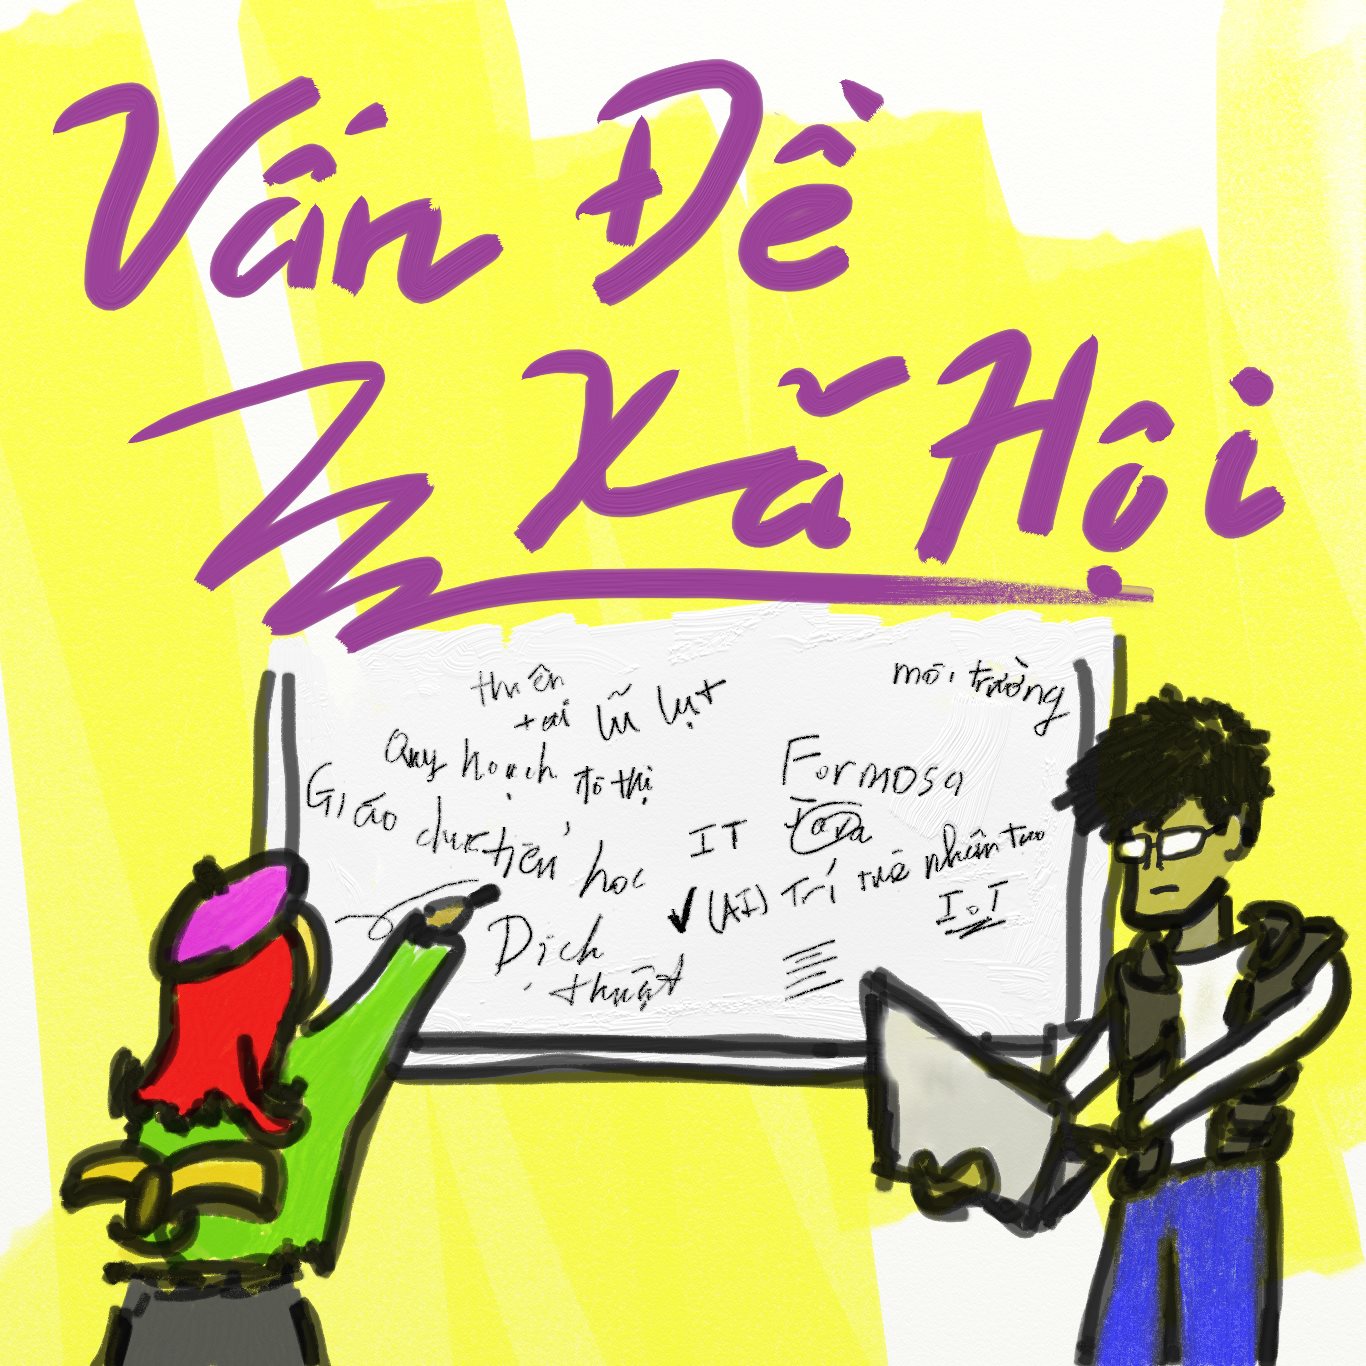 Vấn Đề
Xã Hội
thiên
tai
lũ lụt
môi trường
Quy hoạch
đô thị
Formosa
Giáo dục
tiểu học
IT
(AI) Trí tuệ nhân tạo
IoT
Dịch
thuật